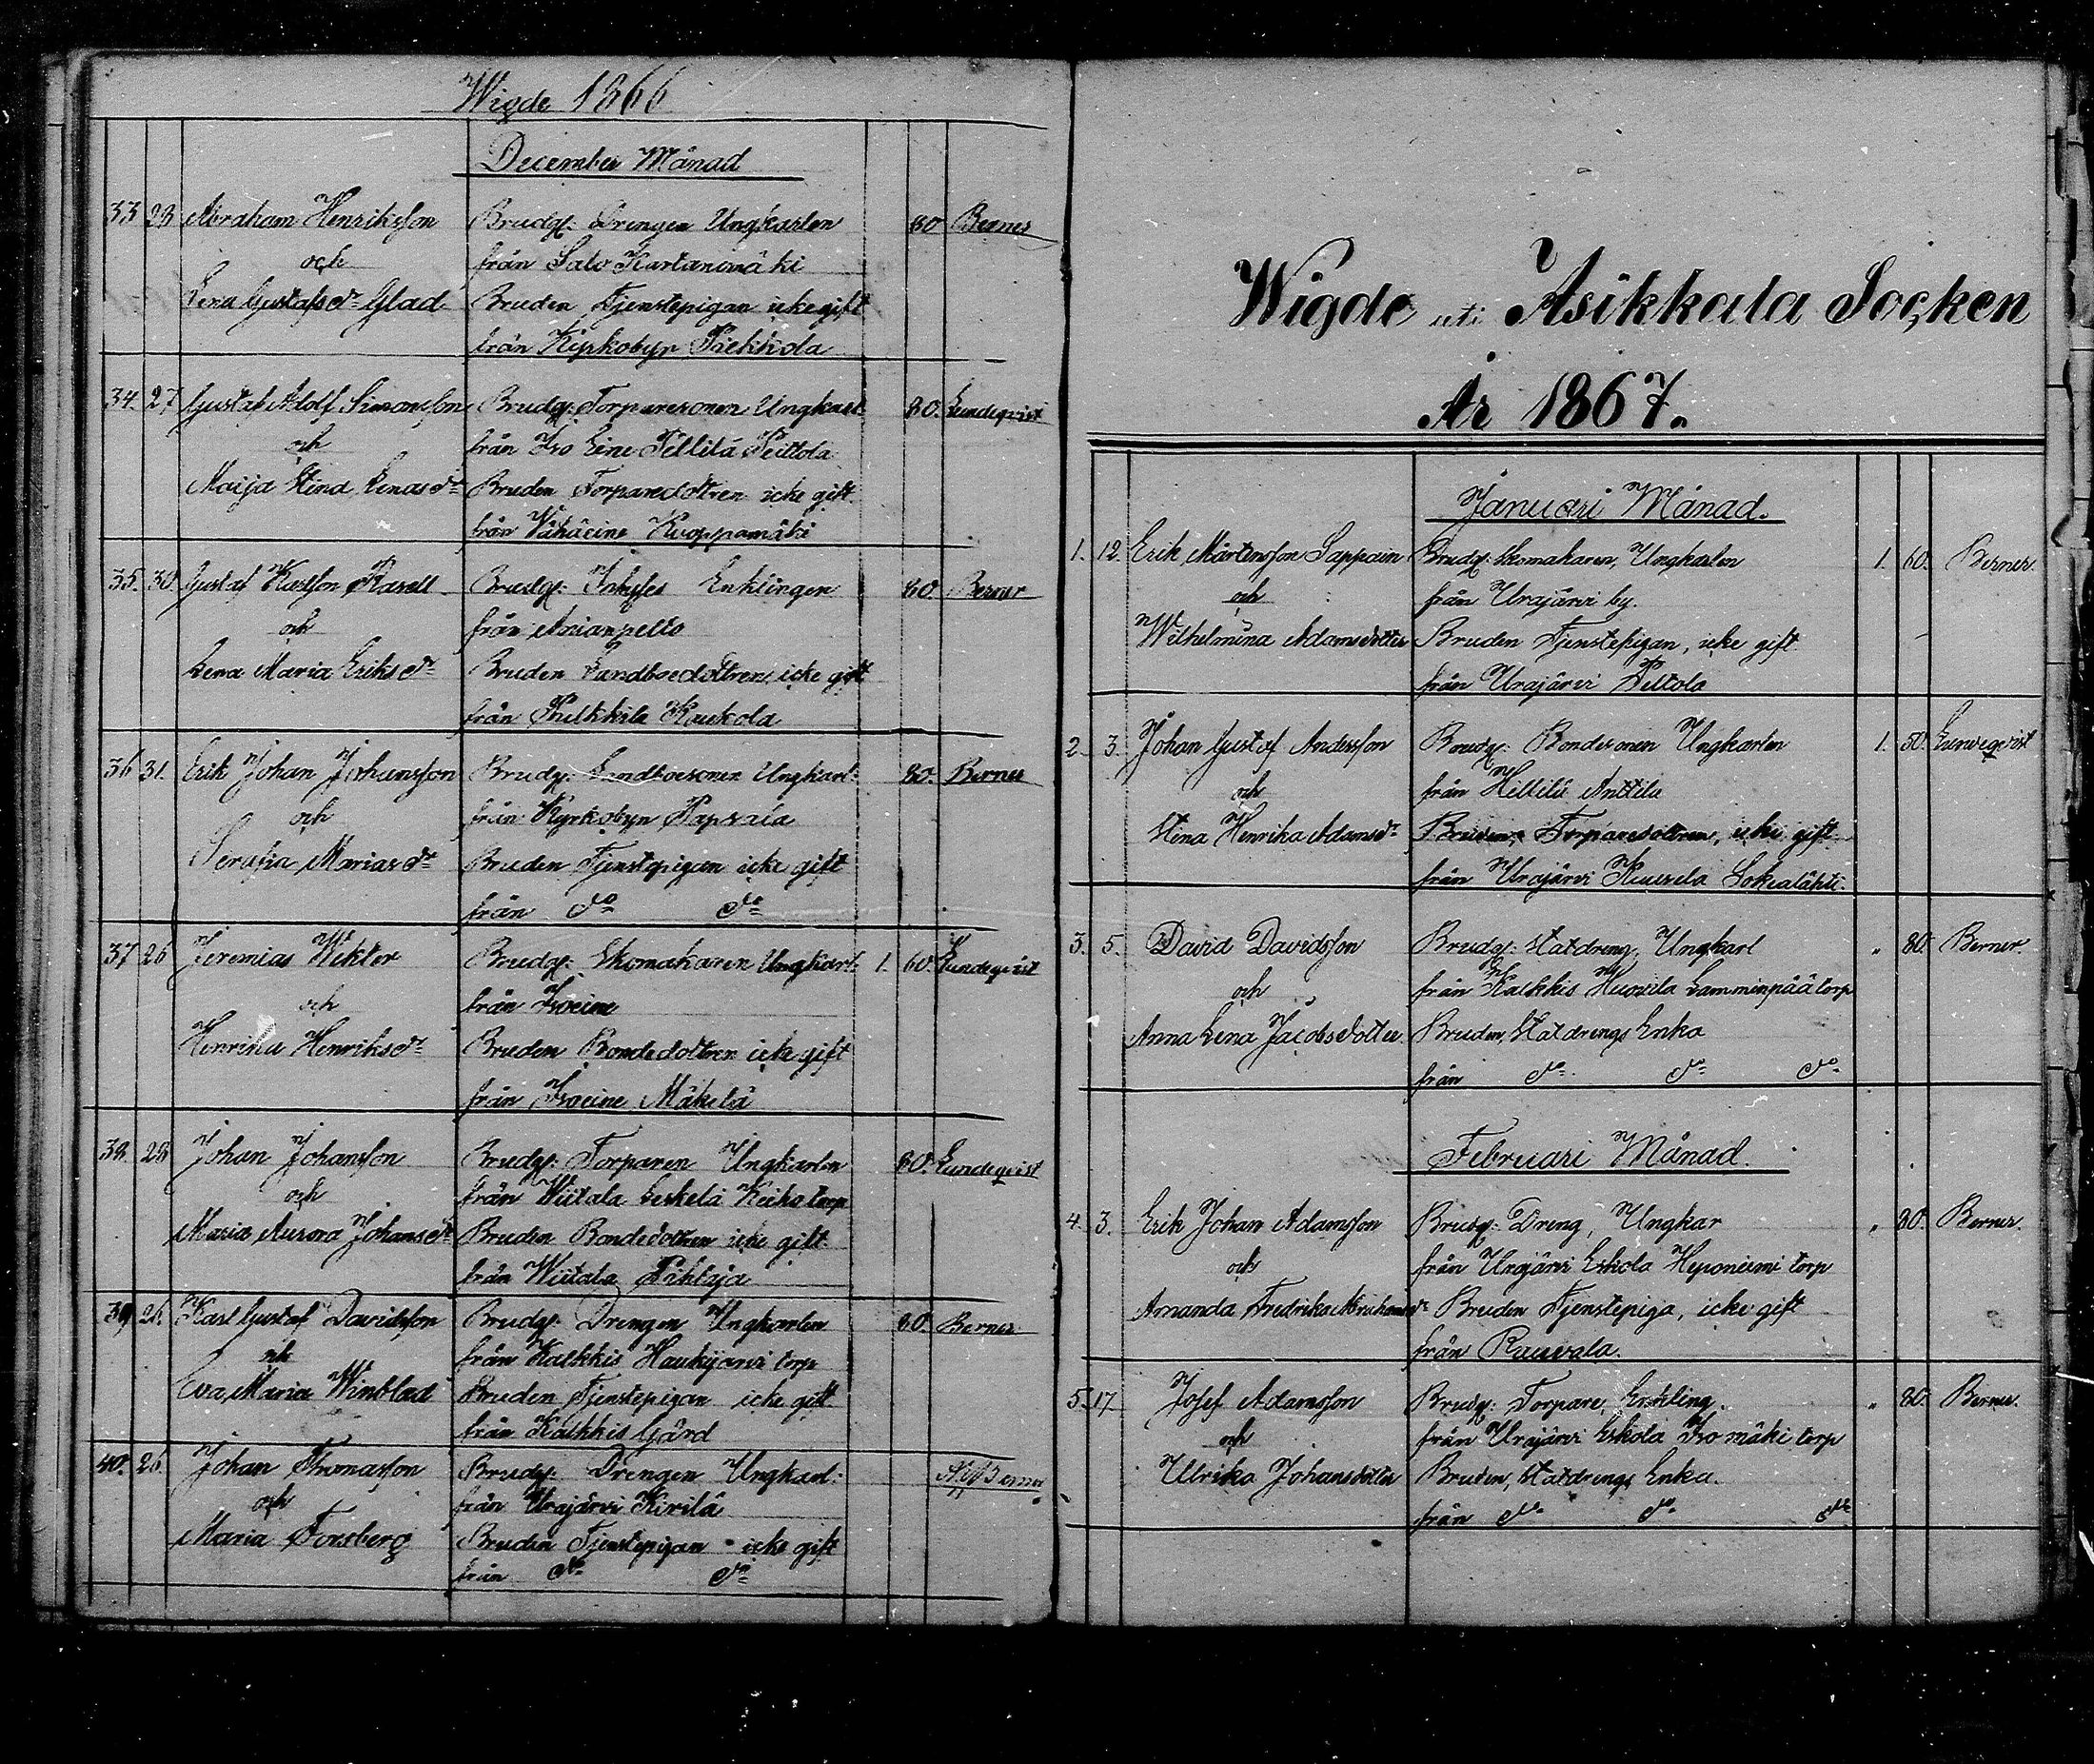 Wigde 1866
December Månad
33 28 Abraham Henriksson Brudg. Drengen Ungkarlen 80 Berner
och från Salo Kartanomäki
Lena Gustafsdr Glad Bruden Tjenstepigan icke gift
från Kyrkobyn Piekkola
34. 27 Gustaf Adolf Simonsson Brudg: Torparesonen Ungkarl 80. Lundeqvist
och från Iso Eine Pellilä Peittola
Maija Stina Lenasdr Bruden Torparedottren icke gift
från Vähäeine Kuoppamäki
35. 30. Gustaf Karlsson Ravell Brudg: Inhyses Enklingen 80. Berner
och från Anianpelto
Lena Maria Eriksdr Bruden Landboedottren icke gift
från Pulkkila Kaukola
36 31. Erik Johan Johansson Brudg: Landboesonen Ungkarl: 80. Berner
och från Kyrkobyn Papsala
Serafia Mariasdr Bruden Tjenstepigan icke gift
från do do
37 26 Jeremias Wikter Brudg: Skomakaren Ungkarl: 1. 60. Lundeqvist
och från Isoeine
Henrika Henriksdr Bruden Bondedottren icke gift
från Isoeine Mäkelä
38. 28 Johan Johansson Brudg: Torparen Ungkarlen 80. Lundeqvist
och från Wiitala Leskelä Keiho torp
Maria Aurora Johansdr Bruden Bondedottren icke gift
från Wiitala Pihlaja
39 26. Karl Gustaf Davidsson Brudg: Drengen Ungkarlen 80. Berner
och från Kalkkis Haukijärvi torp
Eva Maria Winblad Bruden Tjenstepigan icke gift
från Kalkkis Gård
40. 26. Johan Thomasson Brudg: Drengen Ungkarl: Berner
och från Urajärvi Kivilä
Maria Forsberg Bruden Tjenstepigan icke gift
från do do
Wigde uti Asikkala Socken
År 1867.
Januari Månad.
1. 12. Erik Mårtensson Sappain Brudg: Skomakaren, Ungkarlen 1. 60. Berner.
och från Urajärvi by.
Wilhelmina Adamsdotter Bruden Tjenstepigan, icke gift
från Urajärvi Peltola
2. 3. Johan Gustaf Andersson Brudg: Bondesonen Ungkarlen 1. 50. Lundeqvist
och från Hillilä Anttila
Stina Henrika Adamsdr Bruden, Torparedottren, icke gift
från Urajärvi Kuusela Sokealähti.
3. 5. David Davidsson Brudg: Statdreng, Ungkarl " 80. Berner.
och från Kalkkis Huovila Lamminpää torp
Anna Lena Jacobsdotter Bruden, Statdrengs Enka
från do do do
Februari Månad.
4. 3. Erik Johan Adamsson Brudg: Dreng, Ungkar " 80. Berner.
och från Urajärvi Eskola Heponiemi torp
Amanda Fredrika Abrahamsdr Bruden Tjenstepiga, icke gift
från Rauvala.
5. 17. Josef Adamsson Brudg: Torpare, Enkling. " 80. Berner.
och från Urajärvi Eskola Isomäki torp
Ulrika Johansdotter Bruden, Statdrengs Enka.
från do do do